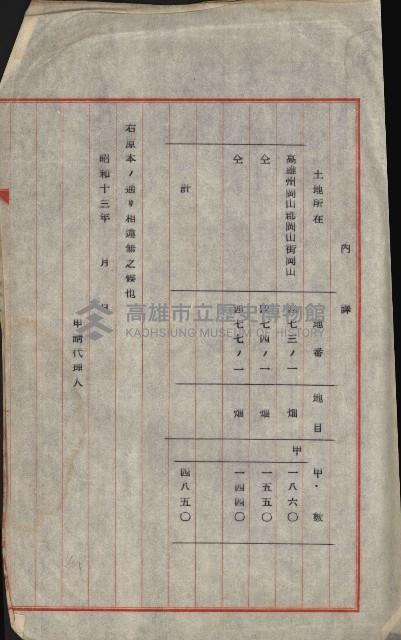 內譯
土地所在 地番 地目 甲・數
高雄州岡山郡岡山街岡山 四七三ノ一 畑 甲 一八六〇
仝 四七四ノ一 畑 一五五〇
仝 四七七ノ一 畑 一四四〇
計 四八五〇
右原本ノ通リ相違無之候也
昭和十三年 月 日
申請代理人
高雄市立歷史博物館
KAOHSIUNG MUSEUM OF HISTORY